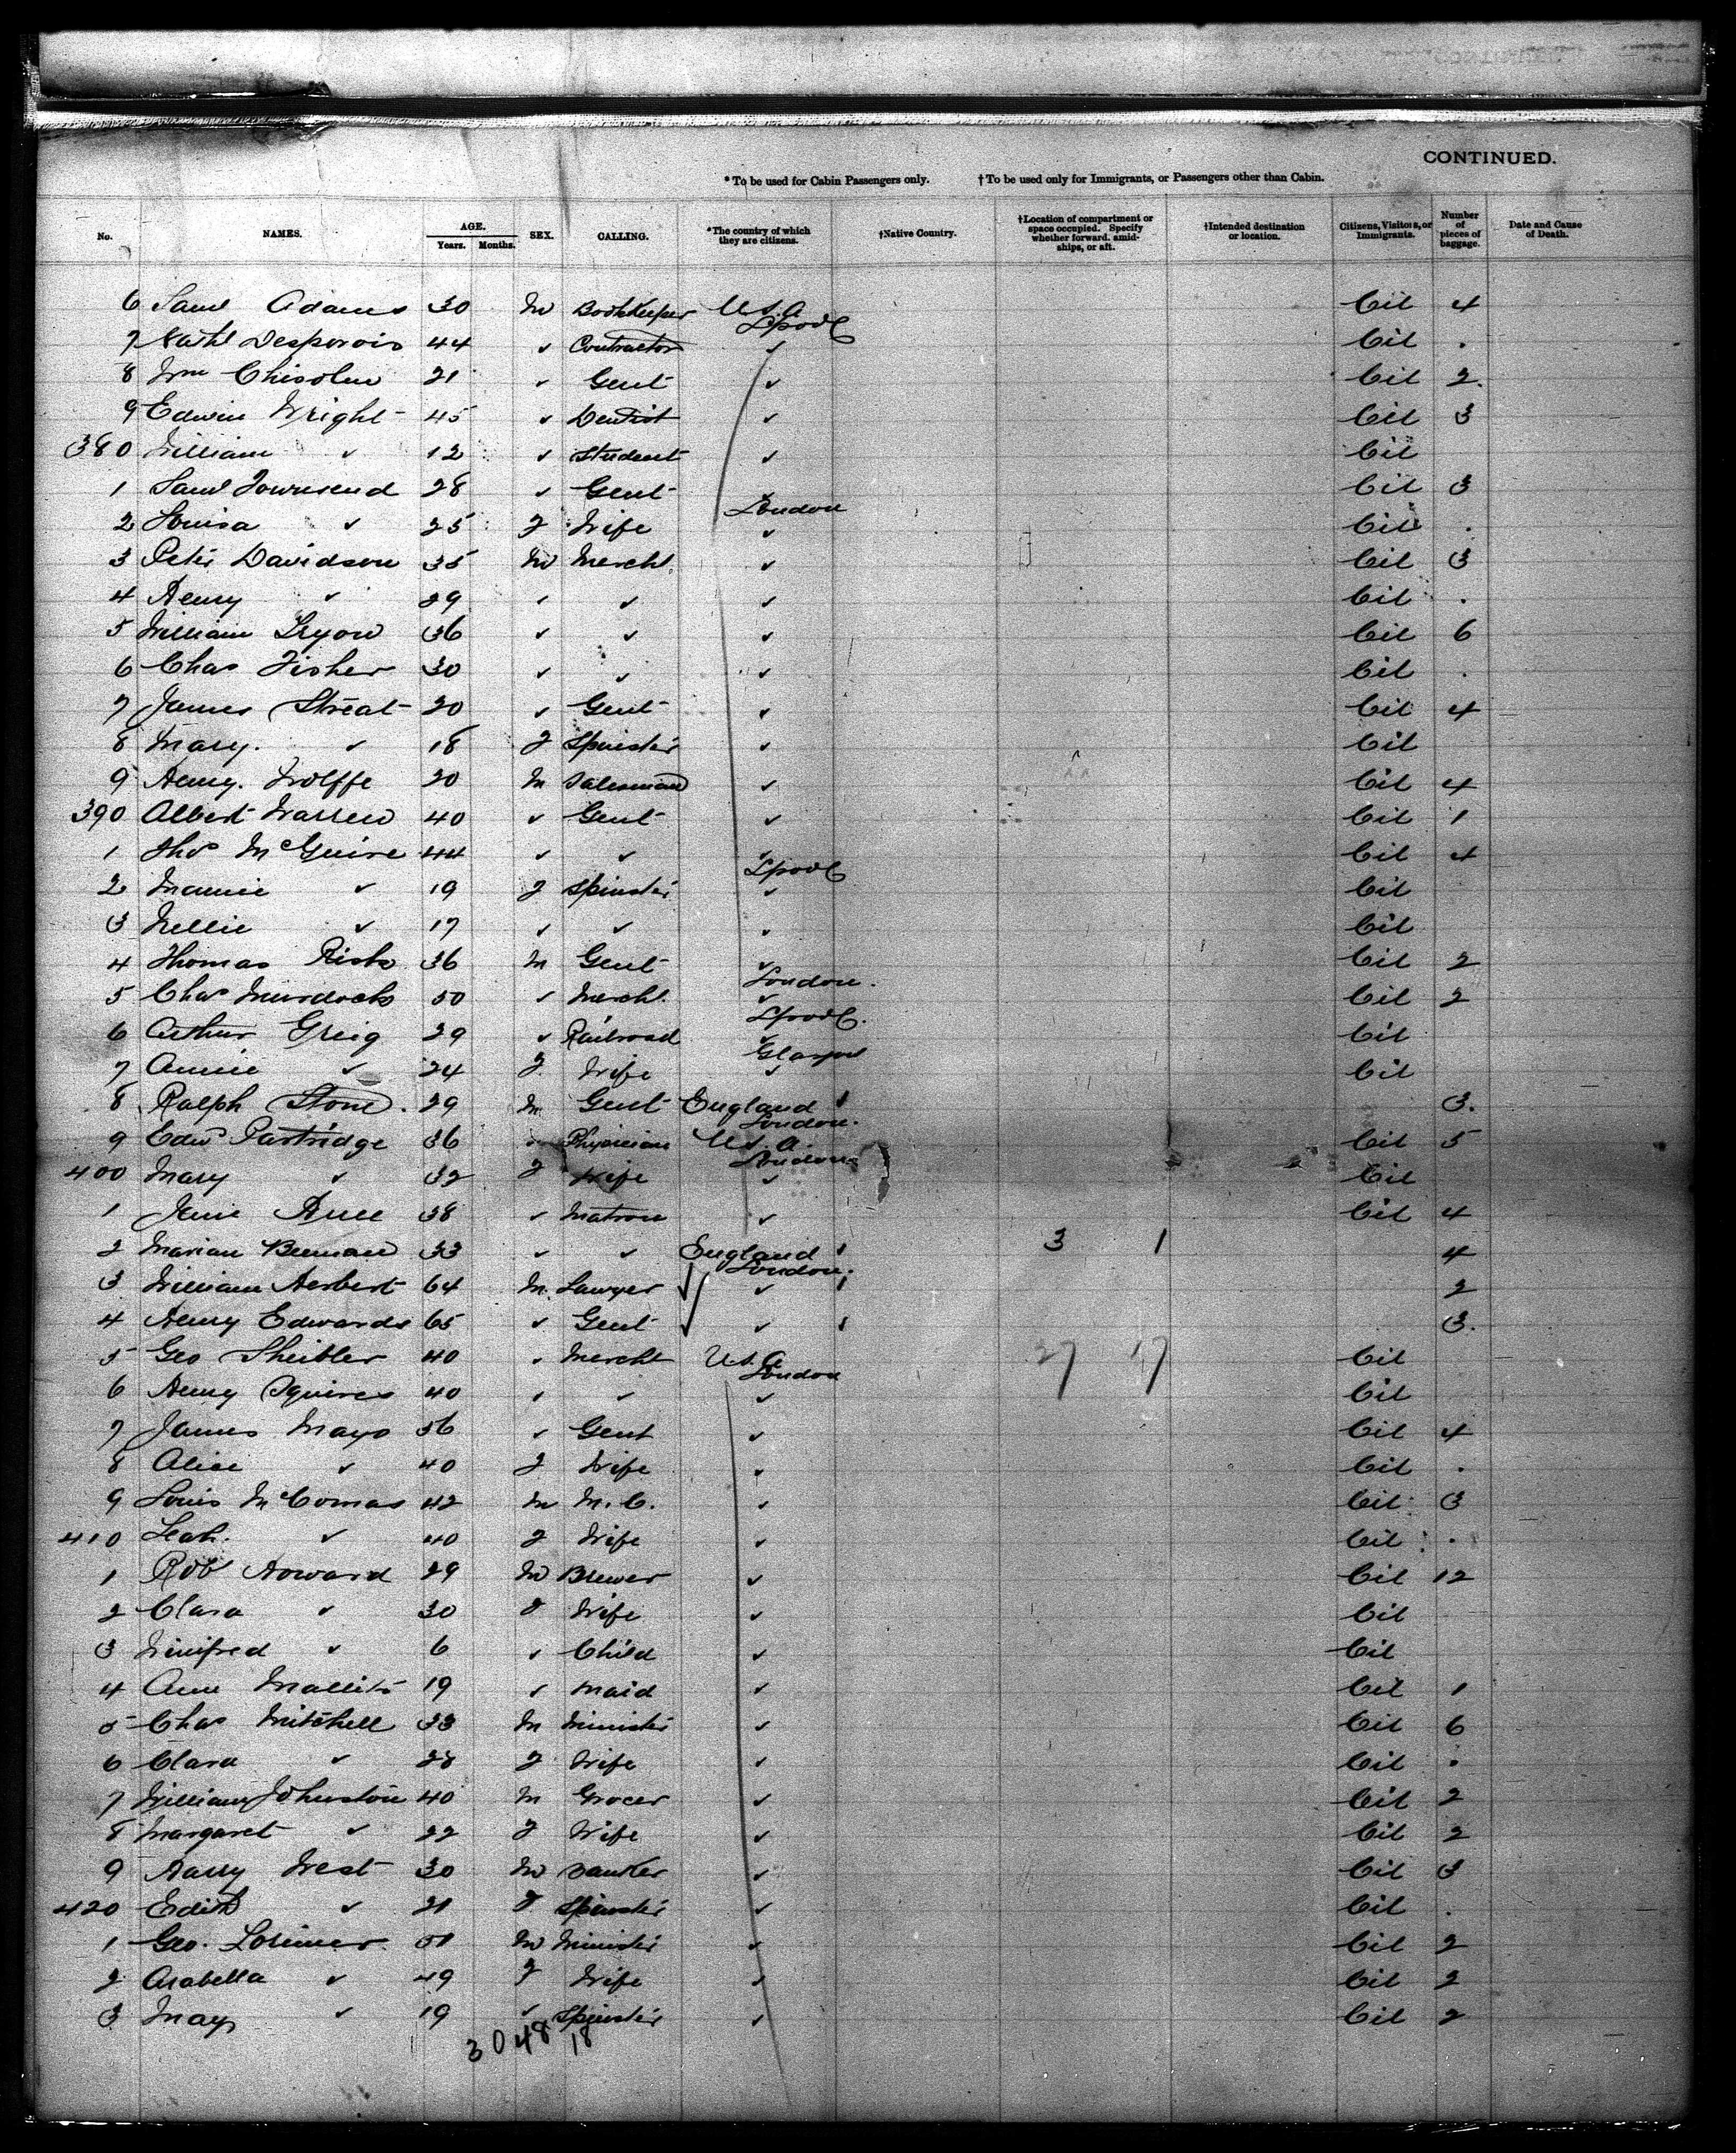 CONTINUED.
* To be used for Cabin Passengers only. † To be used only for Immigrants, or Passengers other than Cabin.
No. NAMES. AGE. Years. Months. SEX. CALLING. *The country of which they are citizens. †Native Country. †Location of compartment or space occupied. Specify whether forward, amidships, or aft. †Intended destination or location. Citizens, Visitors, or Immigrants. Number of pieces of baggage. Date and Cause of Death.
6 Saml Adams 30 M Bookkeeper U.S.A Lpool Cit 4
7 Nathl 44 ✓ Contractor ✓ Cit .
8 Wm Chisolm 21 ✓ Gent ✓ Cit 2.
9 Edwin Wright 45 ✓ Dentist ✓ Cit 3
380 William ✓ 12 ✓ Student ✓ Cit
1 Saml Townsend 28 ✓ Gent ✓ London Cit 3
2 Louisa ✓ 25 F Wife ✓ Cit .
3 Peter Davidson 35 M Mercht. ✓ Cit 3
4 Henry ✓ 29 ✓ ✓ ✓ Cit .
5 William Tryon 36 ✓ ✓ ✓ Cit 6
6 Chas Fisher 30 ✓ ✓ ✓ Cit .
7 James Streat 20 ✓ Gent ✓ Cit 4
8 Mary. ✓ 18 F Spinster ✓ Cit
9 Henry. Wolffe 20 M Salesman ✓ Cit 4
390 Albert Warren 40 ✓ Gent ✓ Cit 1
1 Thos McGuire 44 ✓ ✓ ✓ Lpool Cit 4
2 Mamie ✓ 19 F Spinster ✓ Cit
3 Nellie ✓ 17 ✓ ✓ ✓ Cit
4 Thomas 36 M Gent ✓ London. Cit 2
5 Chas Murdock 50 ✓ Mercht. ✓ Lpool. Cit 2
6 Arthur Greig 29 ✓ Railroad ✓ Glasgow Cit
7 Annie ✓ 24 F. Wife ✓ Cit
8 Ralph Stone. 29 M Gent England London. 3.
9 Edwd Partridge 36 ✓ Physician U.S.A. London Cit 5
400 Mary ✓ 32 F Wife ✓ Cit
1 Jane 38 ✓ Matron ✓ Cit 4
2 Marian 33 ✓ ✓ England London 3 1 4
3 William Herbert 64 M. Lawyer ✓ 2
4 Henry Edwards 65 ✓ Gent ✓ 3.
5 Geo Sheibler 40 ✓ Mercht U.S.A London 27 17 Cit
6 Henry Squires 40 ✓ ✓ ✓ Cit
7 James Mayo 56 ✓ Gent ✓ Cit 4
8 Alice ✓ 40 F Wife ✓ Cit .
9 Louis McComas 42 M M.C. ✓ Cit 3
410 Leah. ✓ 40 F Wife ✓ Cit .
1 Robt Howard 29 M Brewer ✓ Cit 12
2 Clara ✓ 30 F Wife ✓ Cit
3 Winifred ✓ 6 ✓ Child ✓ Cit
4 Ann 19 ✓ Maid ✓ Cit 1
5 Chas Mitchell 33 M Minister ✓ Cit 6
6 Clara ✓ 28 F Wife ✓ Cit .
7 William Johnston 40 M Grocer ✓ Cit 2
8 Margaret ✓ 22 F Wife ✓ Cit 2
9 Harry West 30 M Banker ✓ Cit 3
420 Edith ✓ 21 F Spinster ✓ Cit .
1 Geo. Lorimer 51 M Minister ✓ Cit 2
2 Arabella ✓ 49 F Wife ✓ Cit 2
3 May ✓ 19 ✓ Spinster ✓ Cit 2
30 48 18